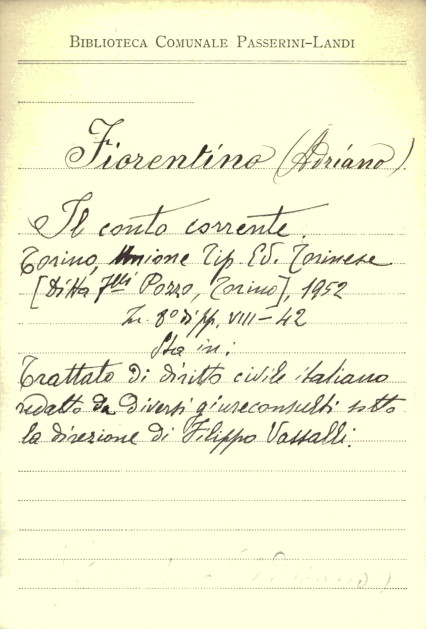 BIBLIOTECA COMUNALE PASSERINI-LANDI
Fiorentino (Adriano)
Il conto corrente.
Torino, Unione Tip. Ed. Torinese
[Ditta F.lli Pozzo, Torino], 1952
In 8° di pp. VIII-42
Sta in:
Trattato di diritto civile italiano
redatto da diversi giureconsulti sotto
la direzione di Filippo Vassalli.